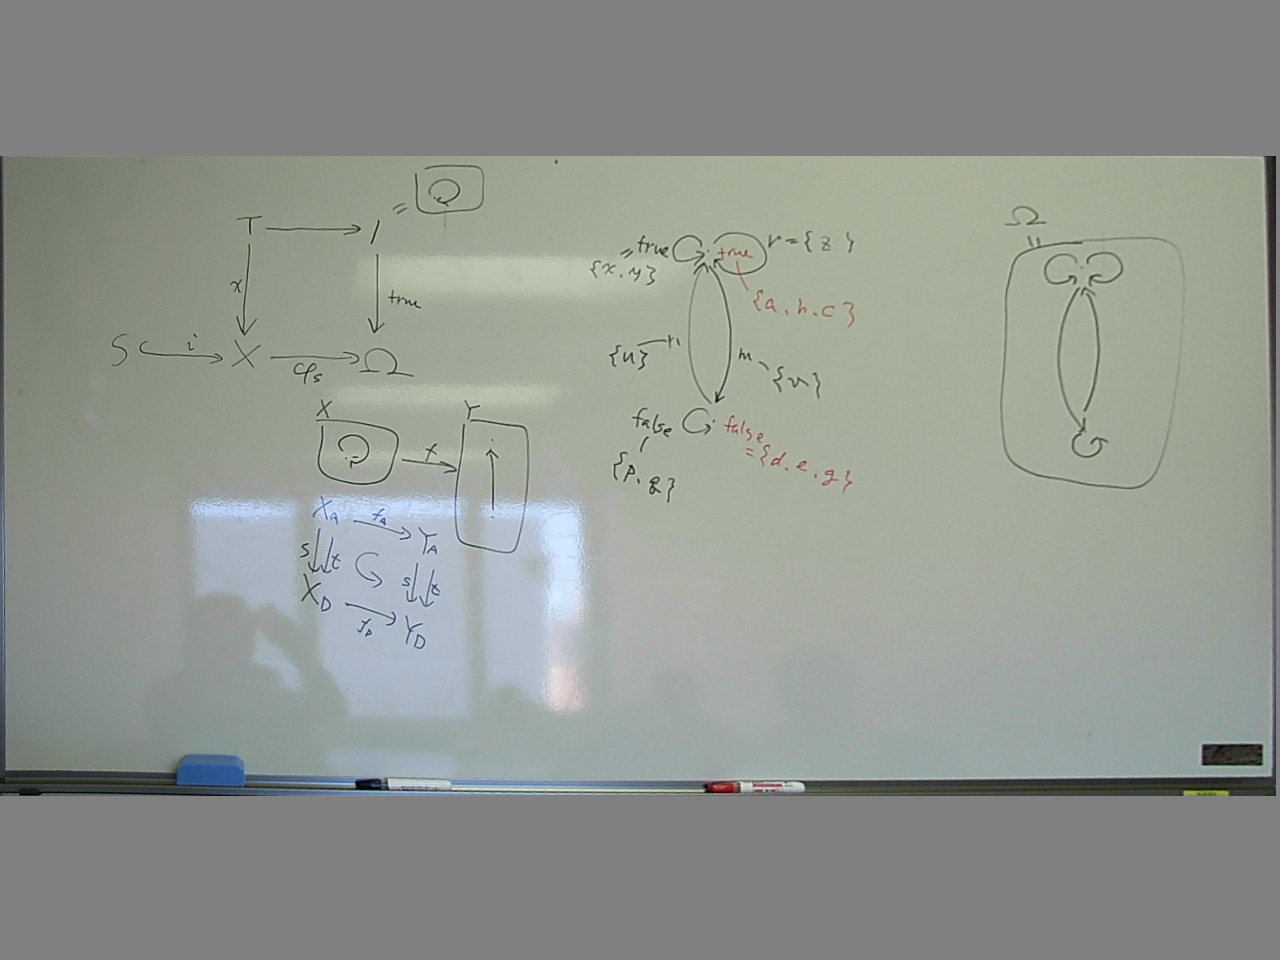 T
1
=
x
true
S
i
X
φs
Ω
X
Y
f
X_A
f_A
Y_A
s
t
s
t
X_D
f_D
Y_D
true
= {x, y}
true
r = {z}
{a, b, c}
{u}
n
m
{v}
false
false
= {d, e, g}
{p, q}
Ω